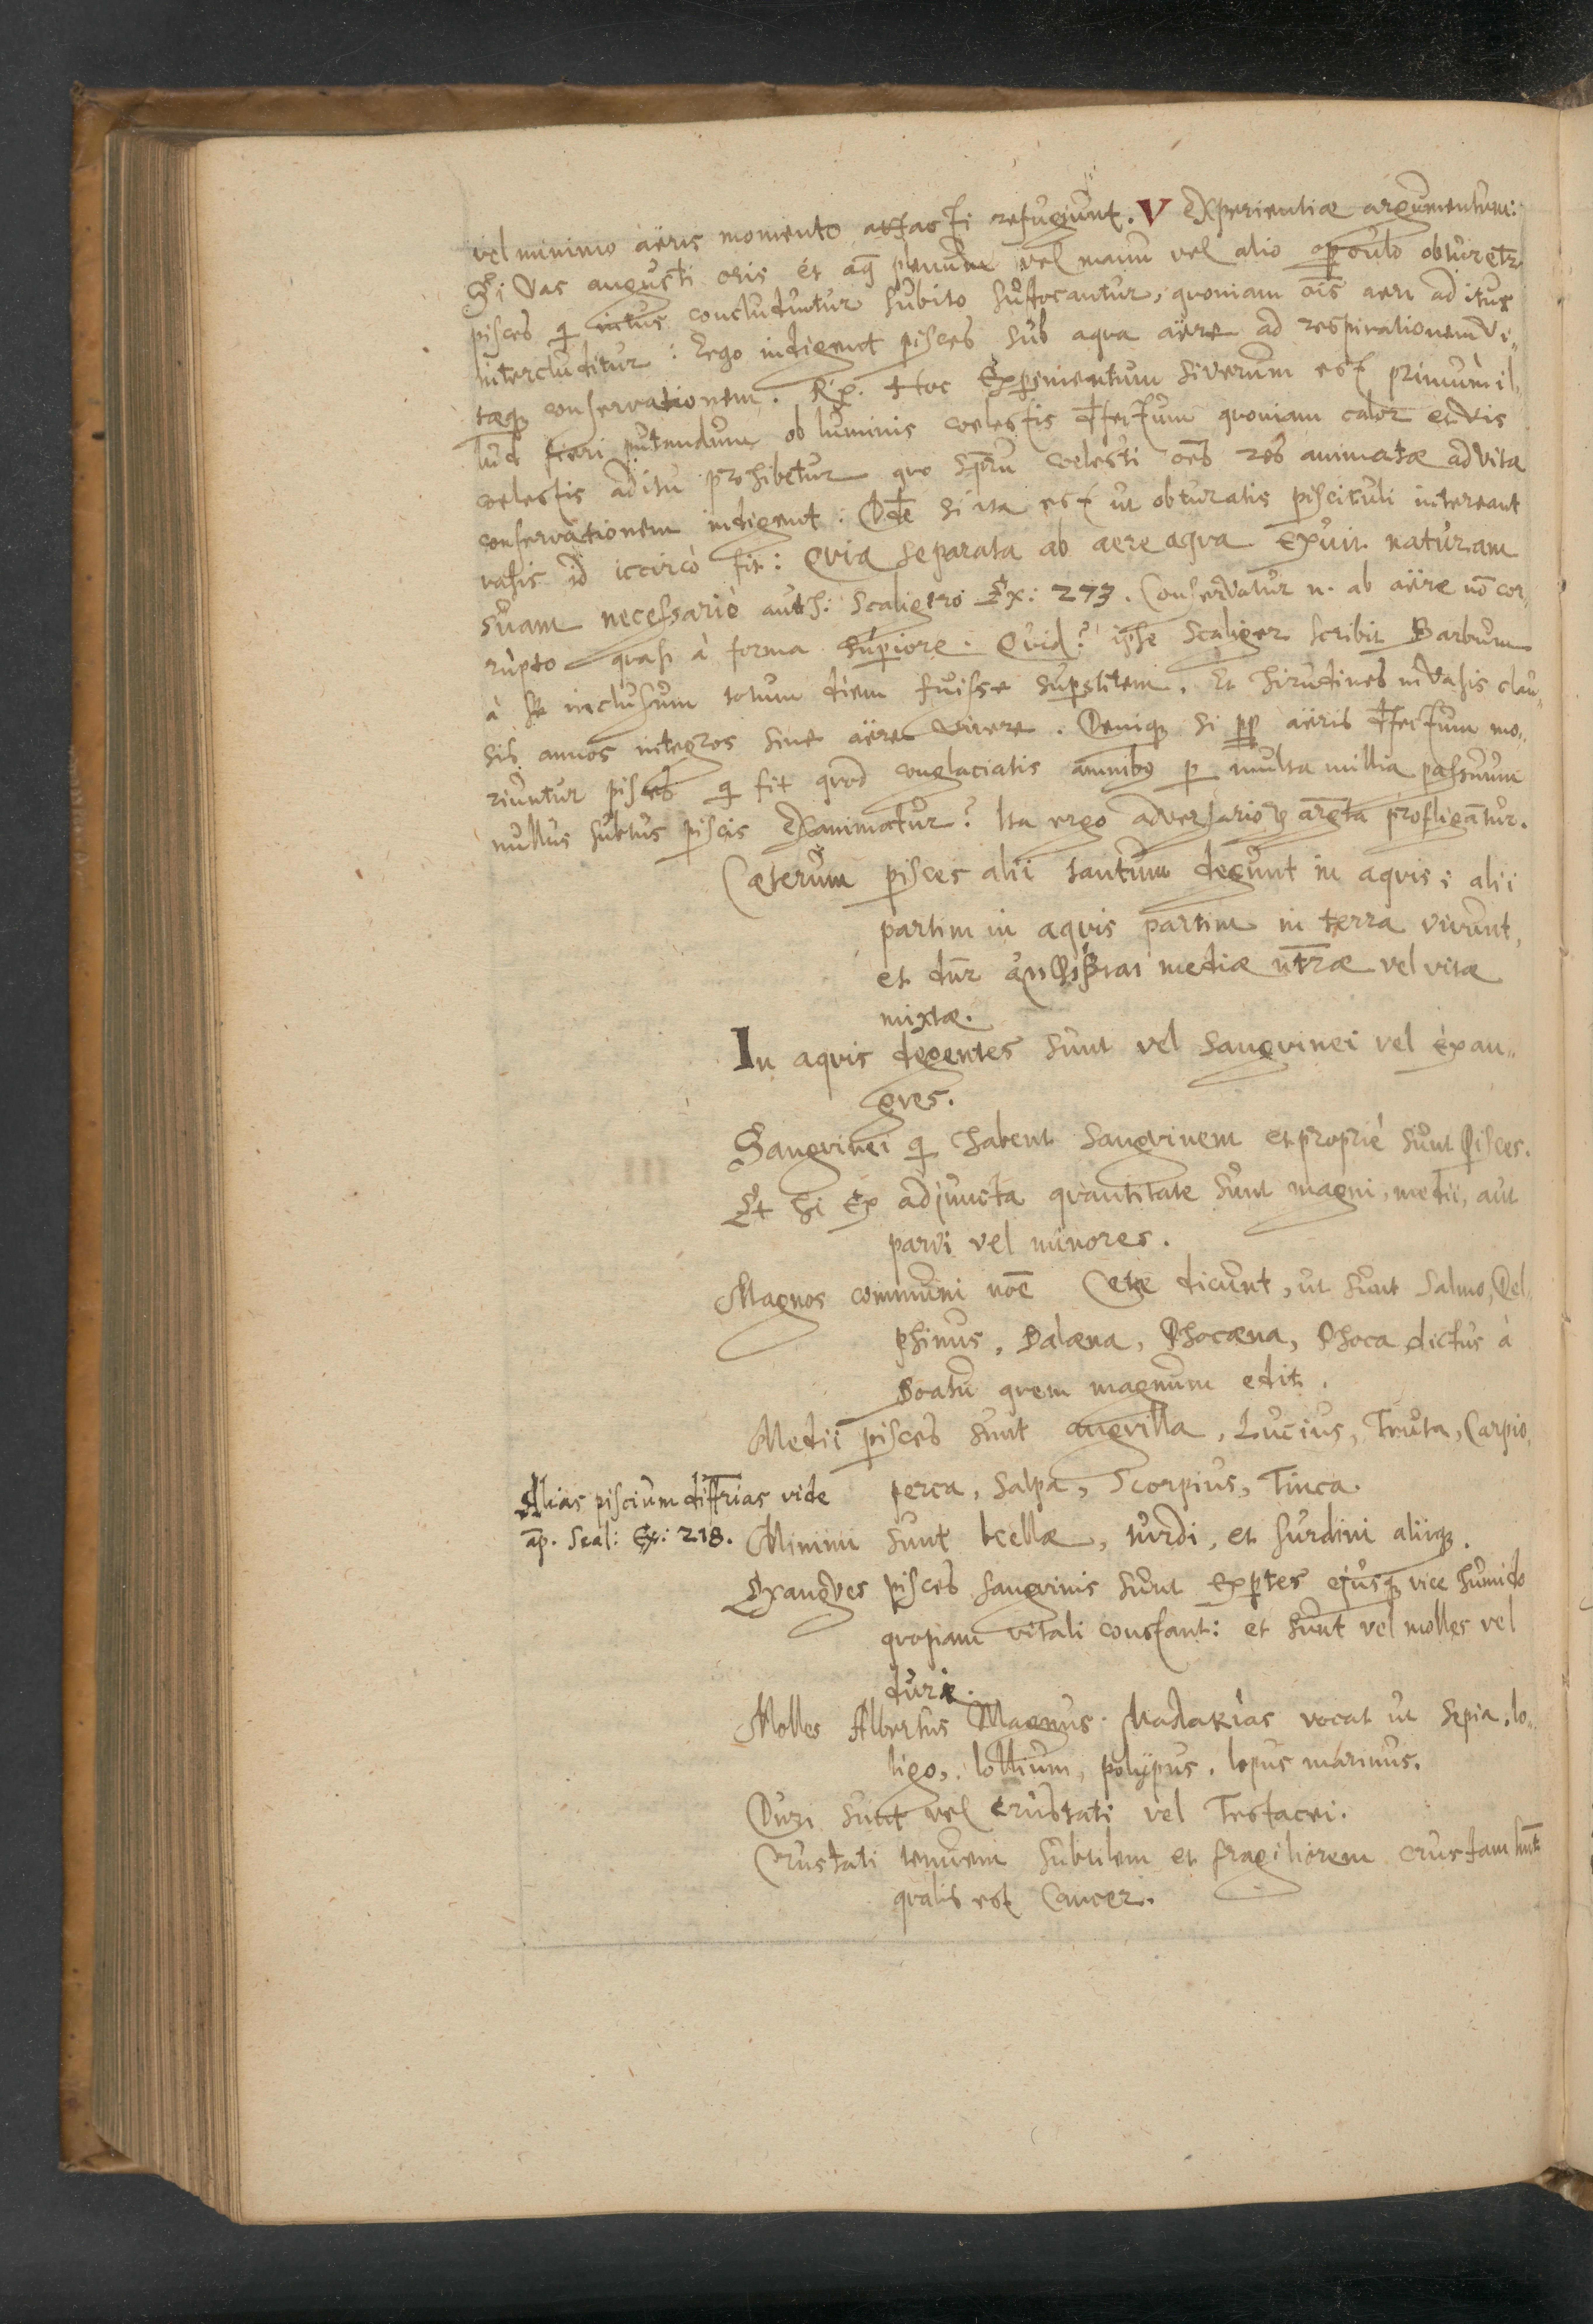 vel minimo aëris momento attacti refugiunt. V Experientiæ argumentum:
Si vas angusti oris et aq̃ plenum vel manu vel alio operculo obturetr
pisces qi intus concluduntur subito suffocantur, quoniam ōis aeri aditus
intercluditur: Ergo indigent pisces sub aqva aëre ad respirationem vi„
tæq; conservationem. Rp. Hoc Experimentum si verum est primum il„
lud fieri putandum ob luminis coelestis defectum qvoniam calor et vis
coelestis aditu prohibetur qvo spũ coelesti oẽs res animatæ ad vitæ
conservationem indigent: Deīde si ita est ut obturatis pisciculi intereant
vasis id iccircò fit: Qvia separata ab aere aqva exuit naturam
suam necessariò auth: Scaligero Ex: 273. Conservatur n. ab aëre nō cor„
rupto qvasi à forma superiore. Qvid? ipse Scaliger scribit Barbum
à se inclusum totum diem fuisse superstitem. Et hirudines in vasis clau„
sis annos integros sine aëre vivere. Deniq; si pp aëris defectum mo„
riuntur pisces qi fit qvod conglaciatis amnibq per multa millia passuum
nullus subtus piscis exanimatur? Ita ergo adversariorum argta profligātur.
Cæterum pisces alii tantum degunt in aqvis; alii
partim in aqvis partim in terra vivunt,
et dnr ἀμφίβιαι mediæ ntræ vel vitæ
mixtæ.
In aqvis degentes sunt vel sangvinei vel exan„
gves.
Sangvinei qi habent sangvinem et propriè sunt Pisces.
Et hi ex adjuncta qvantitate sunt magni, medii, aut
parvi vel minores.
Magnos communi nōe Cete dicunt, ut sunt Salmo, Del„
phinus, Balæna, Phocæna, Phoca dictus à
Boatu qvem magnum edit.
Medii pisces sunt angvilla, Lucius, Truta, Carpio,
perca, Salpa, Scorpius, Tinca.
Alias piscium diffrias vide
ap. Scal: Ex: 218.
Minimi sunt turdi, et surdini aliiq;.
Exangves pisces sangvinis sunt expertes ejusq; vice humido
qvopiam vitali constant: et sunt vel molles vel
duri.
Molles Albertus Magnus μαλακίας vocat ut Sepia, lo„
ligo, lollium, polypus, lepus marinus.
Duri sunt vel Crustati vel Testacei.
Crustati tenuem subtilem et fragiliorem crustam hnt
qvalis est Cancer.